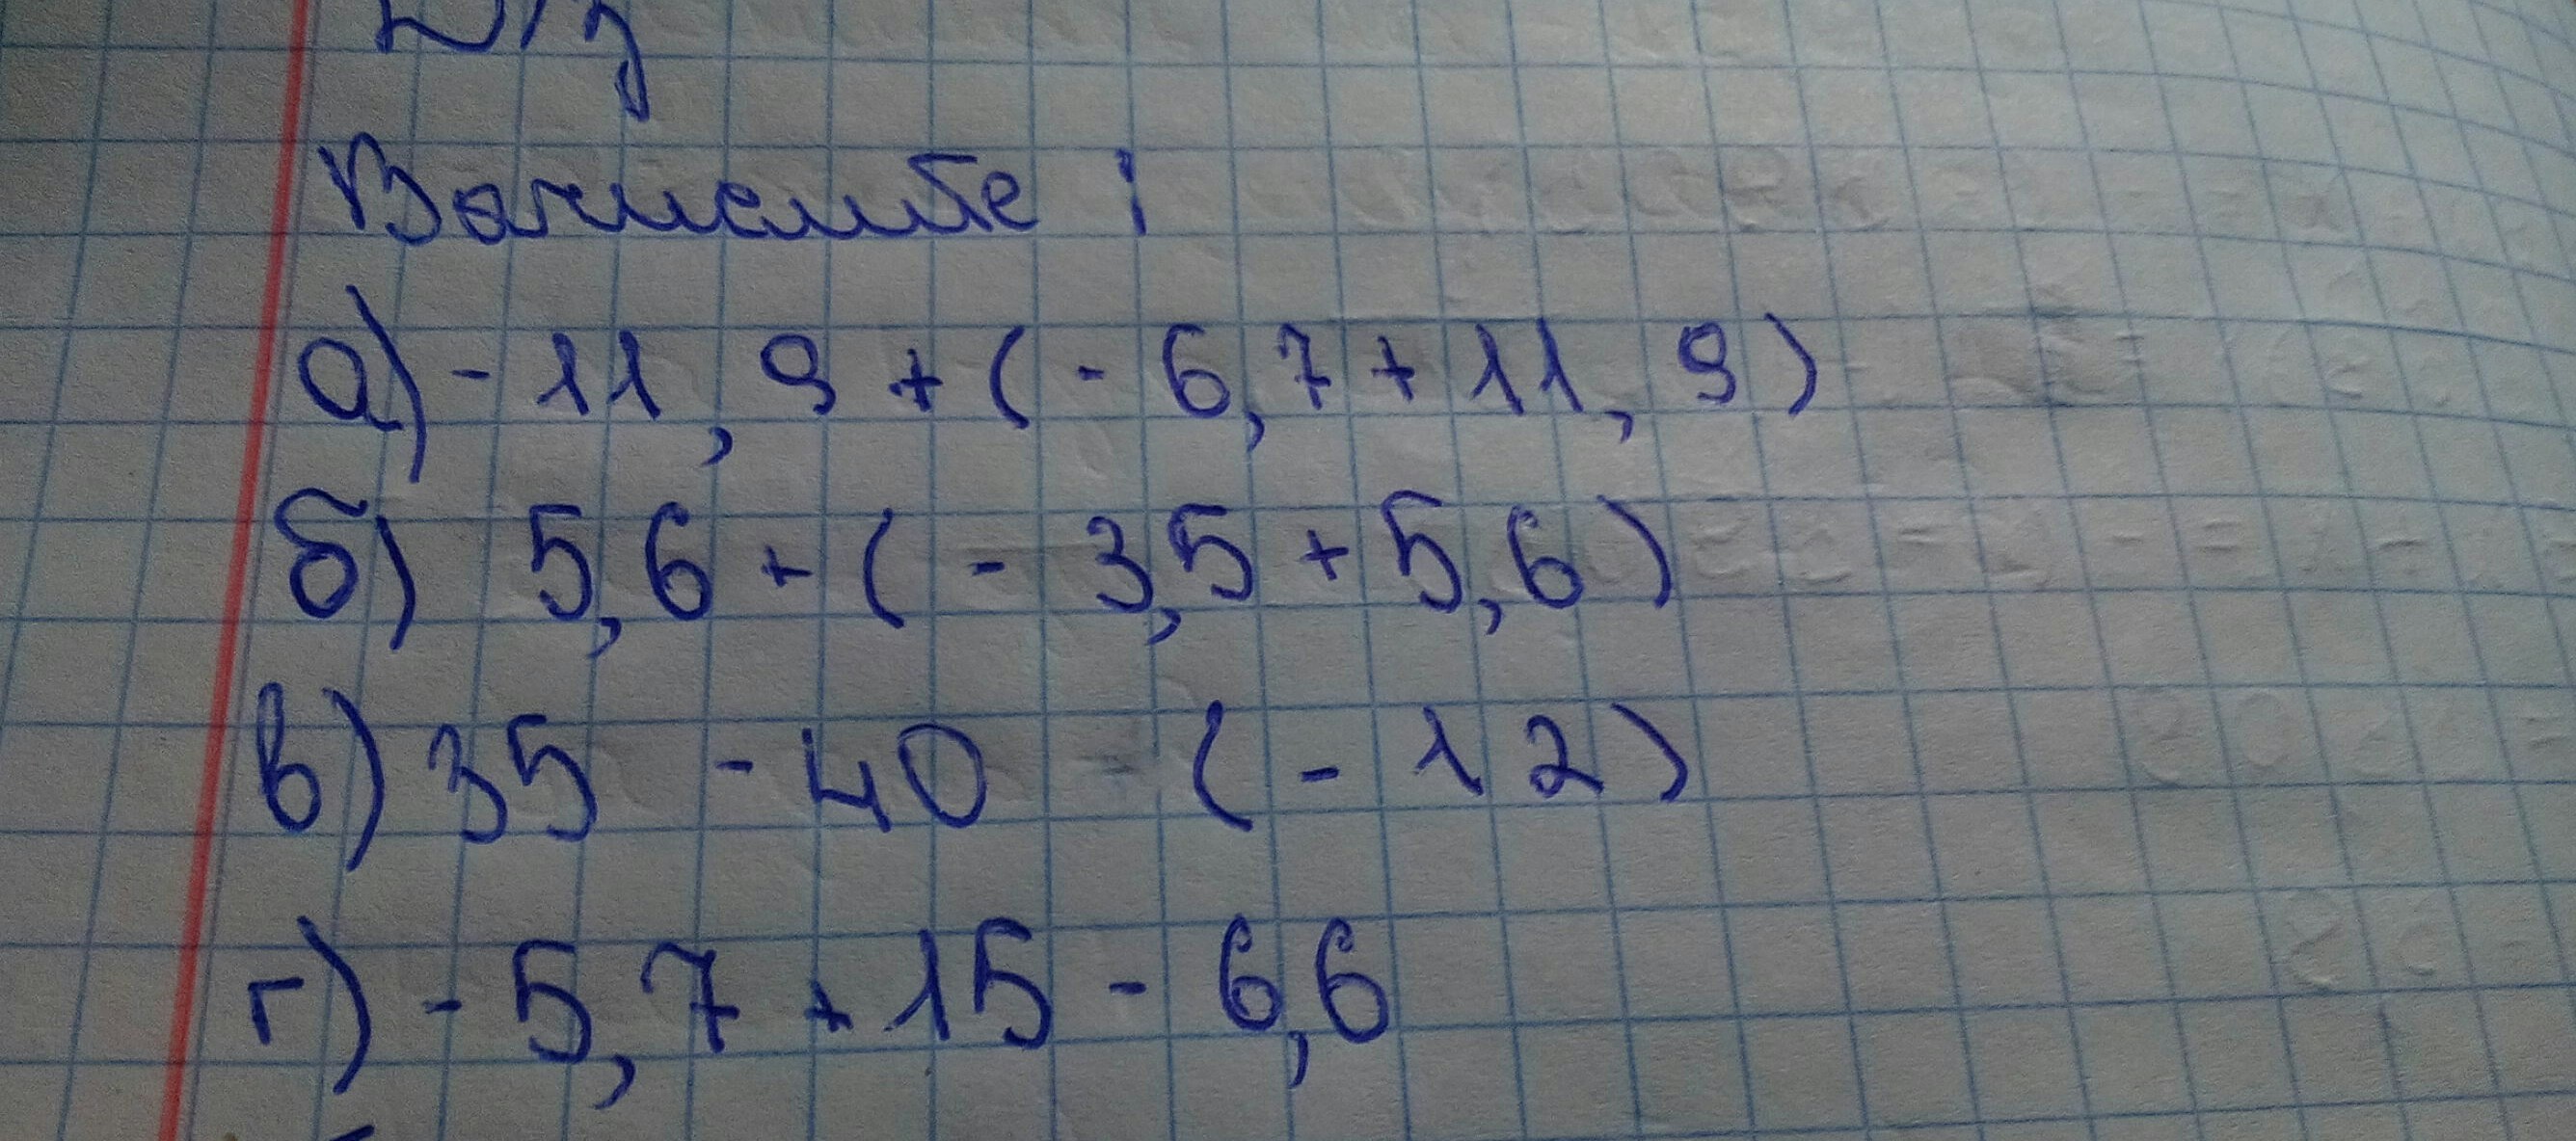 Д/з
Вычислите:
а) - 11, 9 + ( - 6,7 + 11, 9 )
б) 5,6 + ( - 3,5 + 5,6 )
в) 35 - 40 - ( - 12 )
г) - 5,7 + 15 - 6,6